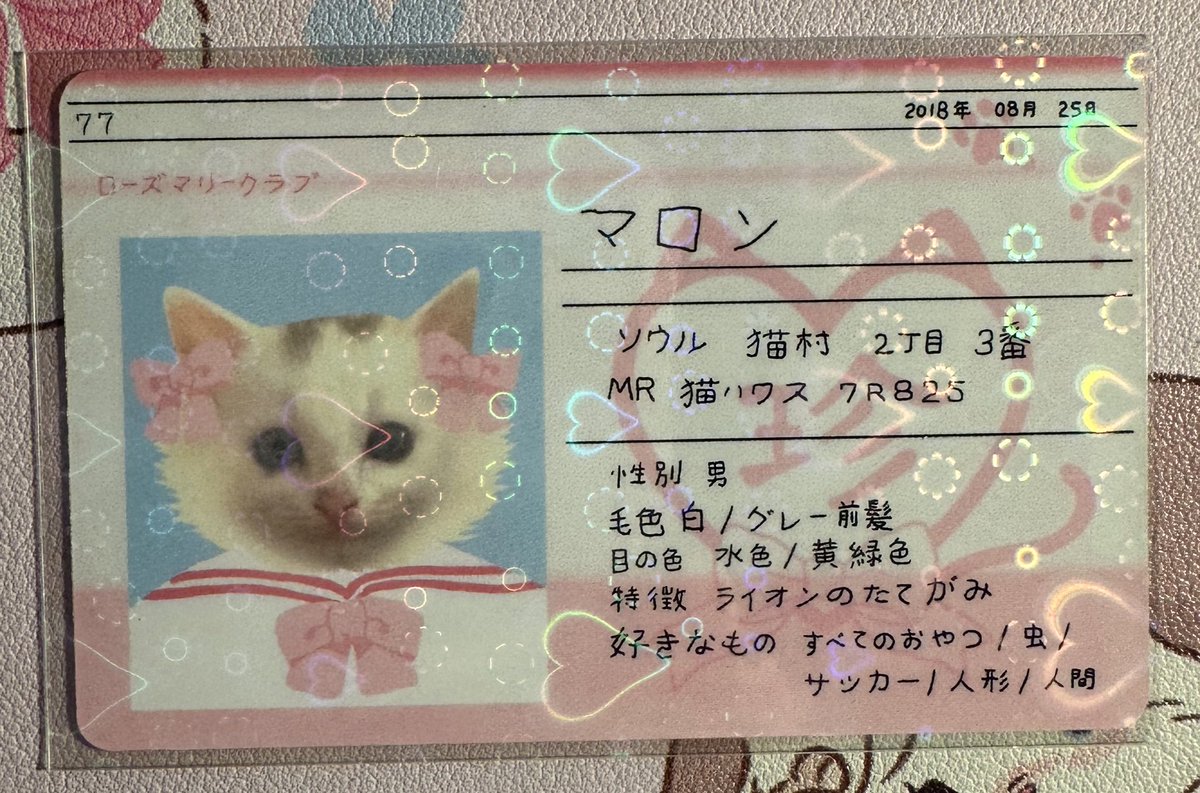 77
2018年 08月 25日
ローズマリークラブ
マロン
ソウル 猫村 2丁目 3番
MR 猫ハウス 7R825
性別 男
毛色 白/グレー前髪
目の色 水色/黄緑色
特徴 ライオンのたてがみ
好きなもの すべてのおやつ/虫/
サッカー/人形/人間